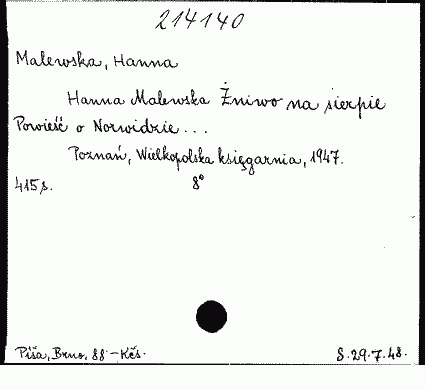 214140
Malewska, Hanna
Hanna Malewska Żniwo na sierpie
Powieść o Norwidzie...
Poznań, Wielkopolska księgarnia, 1947.
415 s. 8°
Píša, Brno, 88·-Kčs. S. 29.7.48.